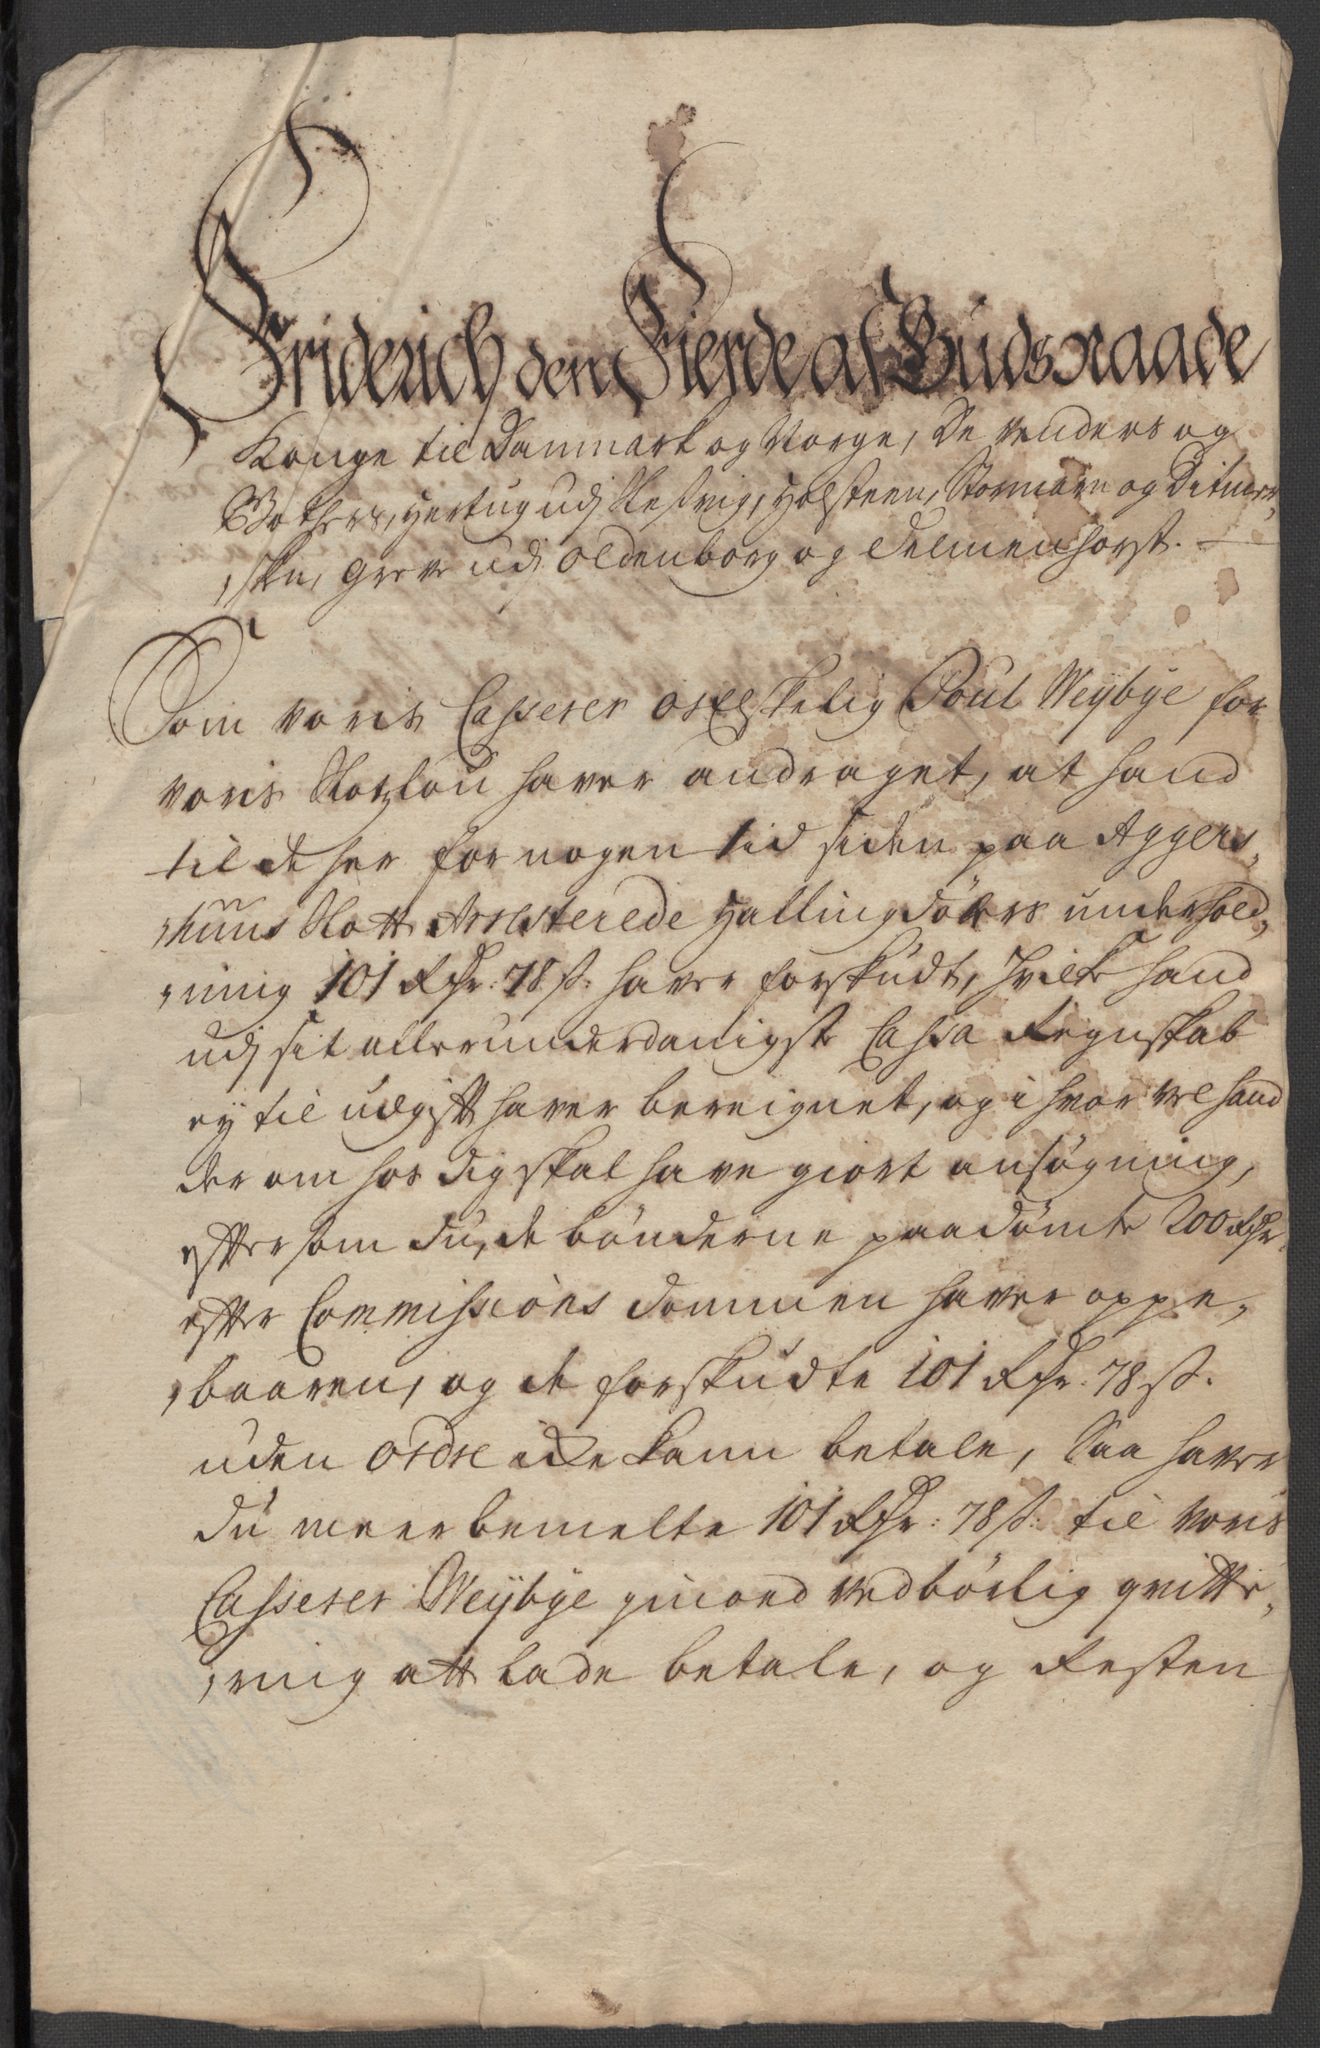 Friderich den Fierde af Guds Naade
Konge til Danmark og Norge, De Venders og
Gothers, Hertug udj Slesvig, Holsteen, Stormarn og Ditmer-
,sken, Greve udj Oldenborg og Delmenhorst. —
Som voris Casserer os Elskelig Poul Weybye for
voris Slotzlou haver andraget, at hand
til de her for nogen tid siden paa Aggers,
,huus Slott Arresterede Hallingdölers underhold,
,ning 101 Rdr: 78 ß. haver forskudt, hvilke hand
udj sit allerunderdanigste Cassa Regnskab
ey til udgift haver bereignet, og i hvor vel hand
der om hos dig skal have giort ansøgning,
efttersom du, de bönderne paadömte 200 Rdr.
eftter Commissions dommen haver oppe,
,baaren, og de forskudte 101 Rdr. 78 ß.
uden Ordre icke kann betale, Saa haver
du meerbemelte 101 Rdr: 78 ß. til voris
Casserer Weybye imod vedbörlig qvitte,
,ring att lade betale, og Resten